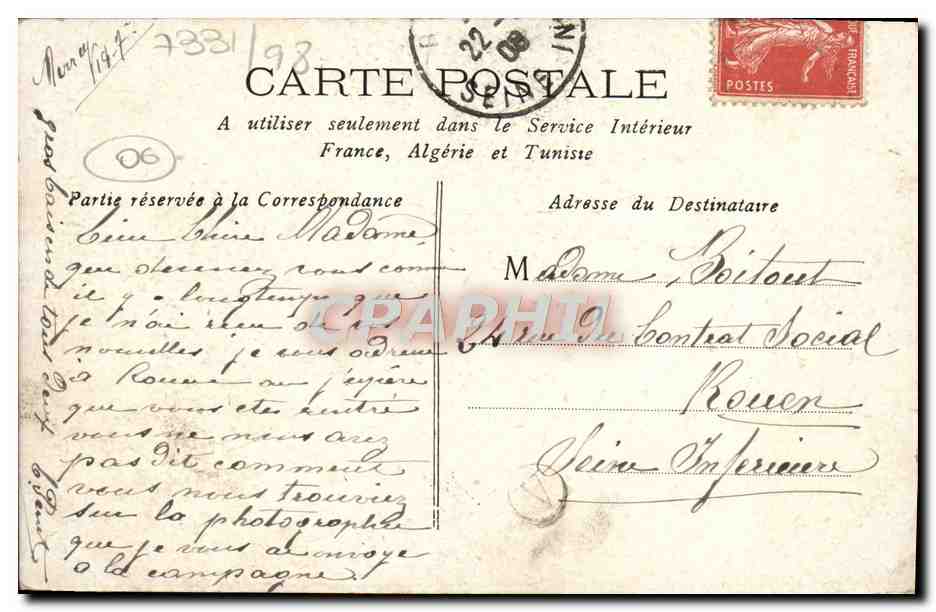 7331/98
CARTE POSTALE
22
08
SEINE IN
POSTES
FRANÇAISE
A utiliser seulement dans le Service Intérieur
France, Algérie et Tunisie
06
Partie réservée à la Correspondance
Adresse du Destinataire
Madame,
que devenez vous comme
il y a longtemps que
je n'ai rien de vos
nouvelles je vous adresse
a Rouen car j'espère
que vous etes rentré
vous ne nous avez
pas dit comment
vous nous trouviez
sur la photographie
que je vous ai envoyé
a la campagne.
gros baiser de tous deux
Madame Boitout
24 rue du Contrat Social
Rouen
Seine Inférieure
CPAPHIL